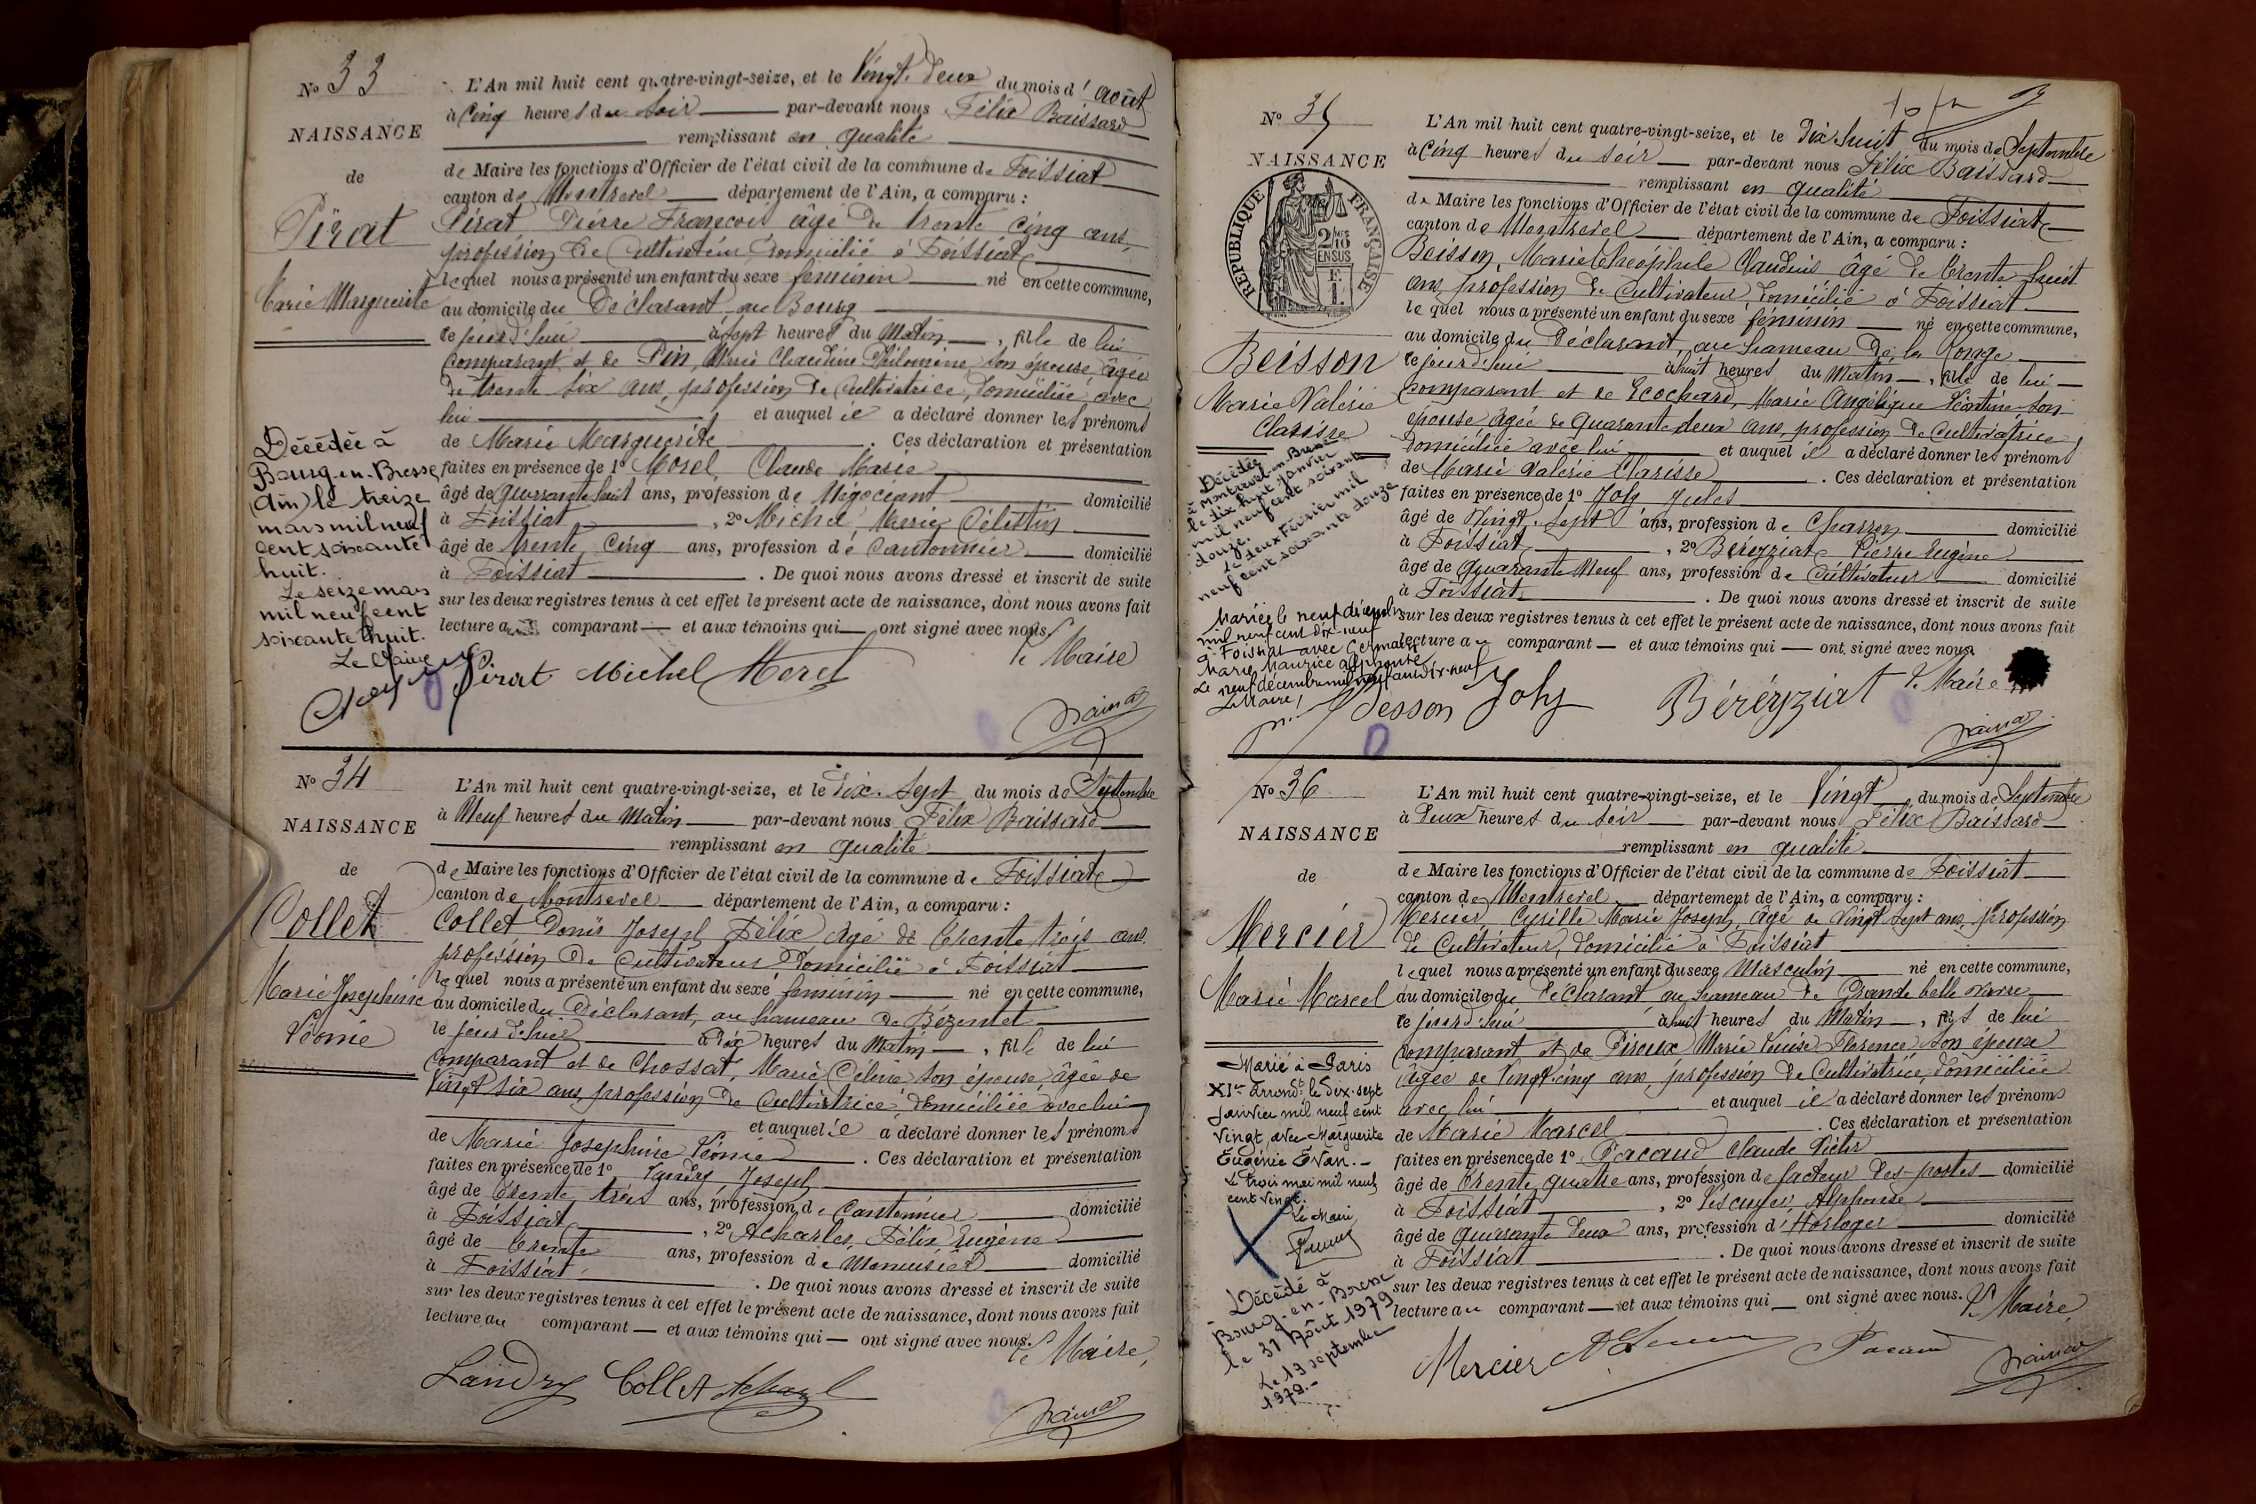 No 33
NAISSANCE
de
Pirat
Marie Marguerite
Décédée à
Bourg-en-Bresse
(Ain) le treize
mars mil neuf
cent soixante
huit.
Le seize mars
mil neuf cent
soixante huit.
Le Maire
L'An mil huit cent quatre-vingt-seize, et le Vingt deux du mois d'août
à Cinq heures du soir par-devant nous Félix Baissard
remplissant en qualité
de Maire les fonctions d'Officier de l'état civil de la commune de Foissiat
canton de Montrevel département de l'Ain, a comparu :
Pirat Pierre François âgé de trente cinq ans,
profession de Cultivateur, domicilié à Foissiat
lequel nous a présenté un enfant du sexe féminin né en cette commune,
au domicile du Déclarant, au Bourg
ce jourd'hui à sept heures du Matin, fille de lui
comparant et de Pin, Marie Claudine Philomène, son épouse, âgée
de trente six ans, profession de Cultivatrice, domiciliée avec
lui et auquel il a déclaré donner les prénoms
de Marie Marguerite. Ces déclaration et présentation
faites en présence de 1° Morel, Claude Marie
âgé de quarante huit ans, profession de Négociant domicilié
à Foissiat, 2° Michel, Marie Célestin
âgé de trente cinq ans, profession de Cantonnier domicilié
à Foissiat. De quoi nous avons dressé et inscrit de suite
sur les deux registres tenus à cet effet le présent acte de naissance, dont nous avons fait
lecture au comparant et aux témoins qui ont signé avec nous.
Le Maire
Pirat Michel Morel
No 34
NAISSANCE
de
Collet
Marie Joséphine
Léonie
L'An mil huit cent quatre-vingt-seize, et le Dix-Sept du mois de Septembre
à Neuf heures du Matin par-devant nous Félix Baissard
remplissant en qualité
de Maire les fonctions d'Officier de l'état civil de la commune de Foissiat
canton de Montrevel département de l'Ain, a comparu :
Collet Denis Joseph Félix, âgé de trente trois ans
profession de Cultivateur domicilié à Foissiat
lequel nous a présenté un enfant du sexe féminin né en cette commune,
au domicile du Déclarant, au hameau de Bézentet
le jour d'hier à Dix heures du Matin, fille de lui
comparant et de Chossat, Marie Céline son épouse, âgée de
Vingt six ans, profession de Cultivatrice, domiciliée avec lui
et auquel il a déclaré donner les prénoms
de Marie Joséphine Léonie. Ces déclaration et présentation
faites en présence de 1° Landry Joseph
âgé de trente trois ans, profession de Cantonnier domicilié
à Foissiat, 2° Acharles, Félix Eugène
âgé de trente ans, profession de Menuisier domicilié
à Foissiat. De quoi nous avons dressé et inscrit de suite
sur les deux registres tenus à cet effet le présent acte de naissance, dont nous avons fait
lecture au comparant et aux témoins qui ont signé avec nous.
Le Maire,
Landry Collet
No 35
NAISSANCE
RÉPUBLIQUE FRANÇAISE
2/10
EN SUS
Beisson
Marie Valérie
Clarisse
Décédée
à Montrevel-en-Bresse
le dix huit janvier
mil neuf cent soixante
douze.
Le deux Février mil
neuf cent soixante douze
Mariée le neuf décembre
mil neuf cent dix-neuf
à Foissiat avec Germain
Marie Maurice Alphonse
Le neuf décembre mil neuf cent dix-neuf
Le Maire,
L'An mil huit cent quatre-vingt-seize, et le Dix huit du mois de Septembre
à Cinq heures du soir par-devant nous Félix Baissard
remplissant en qualité
de Maire les fonctions d'Officier de l'état civil de la commune de Foissiat
canton de Montrevel département de l'Ain, a comparu :
Beisson, Marie Théophile Claudius âgé de trente huit
ans, profession de Cultivateur, domicilié à Foissiat
lequel nous a présenté un enfant du sexe féminin né en cette commune,
au domicile du Déclarant, au hameau de la
ce jourd'hui à huit heures du Matin, fille de lui
comparant et de Ecochard, Marie Angélique Léontine son
épouse âgée de quarante deux ans, profession de Cultivatrice,
domiciliée avec lui et auquel il a déclaré donner les prénoms
de Marie Valérie Clarisse. Ces déclaration et présentation
faites en présence de 1° Joly Jules
âgé de Vingt-Sept ans, profession de Charron domicilié
à Foissiat, 2° Béréyziat Pierre Eugène
âgé de Quarante Neuf ans, profession de Cultivateur domicilié
à Foissiat. De quoi nous avons dressé et inscrit de suite
sur les deux registres tenus à cet effet le présent acte de naissance, dont nous avons fait
lecture au comparant et aux témoins qui ont signé avec nous.
Le Maire
Besson Joly Béréyziat
No 36
NAISSANCE
de
Mercier
Marie Marcel
Marié à Paris
XIe arrondt. le Dix-sept
janvier mil neuf cent
vingt, avec Marguerite
Eugénie Evan.
Le trois mai mil neuf
cent vingt.
Le Maire
Décédé à
Bourg-en-Bresse
le 31 Août 1979
Le 19 septembre
1979.-
L'An mil huit cent quatre-vingt-seize, et le Vingt du mois de Septembre
à Deux heures du soir par-devant nous Félix Baissard
remplissant en qualité
de Maire les fonctions d'Officier de l'état civil de la commune de Foissiat
canton de Montrevel département de l'Ain, a comparu :
Mercier, Cyrille Marie Joseph, âgé de Vingt Sept ans, profession
de Cultivateur, domicilié à Foissiat
lequel nous a présenté un enfant du sexe Masculin né en cette commune,
au domicile du Déclarant au hameau de Grande belle
ce jourd'hui à huit heures du Matin, fils de lui
comparant et de Piroux Marie Louise Florence son épouse
âgée de Vingt-cinq ans, profession de Cultivatrice, domiciliée
avec lui et auquel il a déclaré donner les prénoms
de Marie Marcel. Ces déclaration et présentation
faites en présence de 1° Pacaud Claude Victor
âgé de trente quatre ans, profession de facteur des postes domicilié
à Foissiat, 2° Lescuyer, Alphonse
âgé de quarante deux ans, profession d'Horloger domicilié
à Foissiat. De quoi nous avons dressé et inscrit de suite
sur les deux registres tenus à cet effet le présent acte de naissance, dont nous avons fait
lecture au comparant et aux témoins qui ont signé avec nous. Le Maire,
Mercier Pacaud